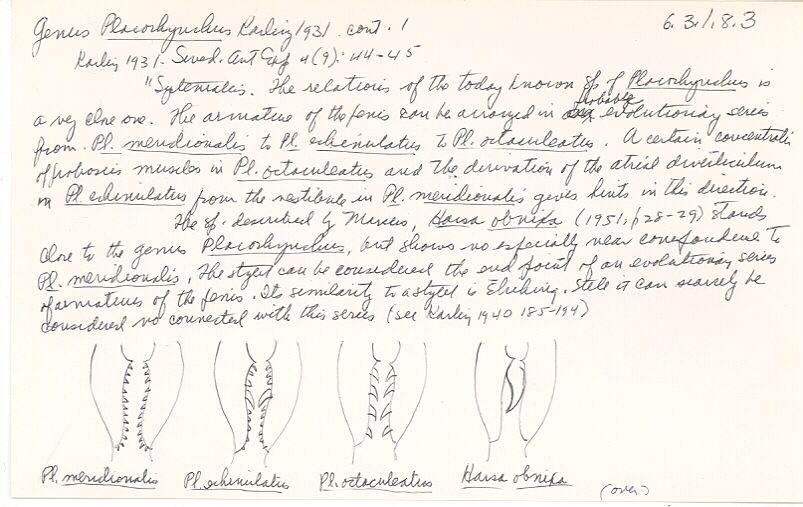 Genus Placorhynchus Karling 1931 cont. 1
6.3.1.8.3
Karling 1931 - Swed. Ant Exp 4(9): 44-45
"Systematic. The relations of the today known sp of Placorhynchus is
a very close one. The armature of the penis can be arranged in probable evolutionary series
from Pl. meridionalis to Pl. echinulatus to Pl. octaculeatus. A certain concentratio
of proboscis muscles in Pl. octaculeatus and the derivation of the atrial diverticulum
in Pl. echinulatus from the vestibule in Pl. meridionalis gives hints in this direction.
The sp. described by Marcus, Harsa obnixa (1951, p 28-29) stands
close to the genus Placorhynchus, but shows no especially near correspondence to
Pl. meridionalis. The stylet can be considered the end point of an evolutionary series
of armatures of the penis. Its similarity to a stylet is striking. Still it can scarcely be
considered no connected with this series (see Karling 1940 185-194)
Pl. meridionalis
Pl echinulatus
Pl. octaculeatus
Harsa obnixa
(over)